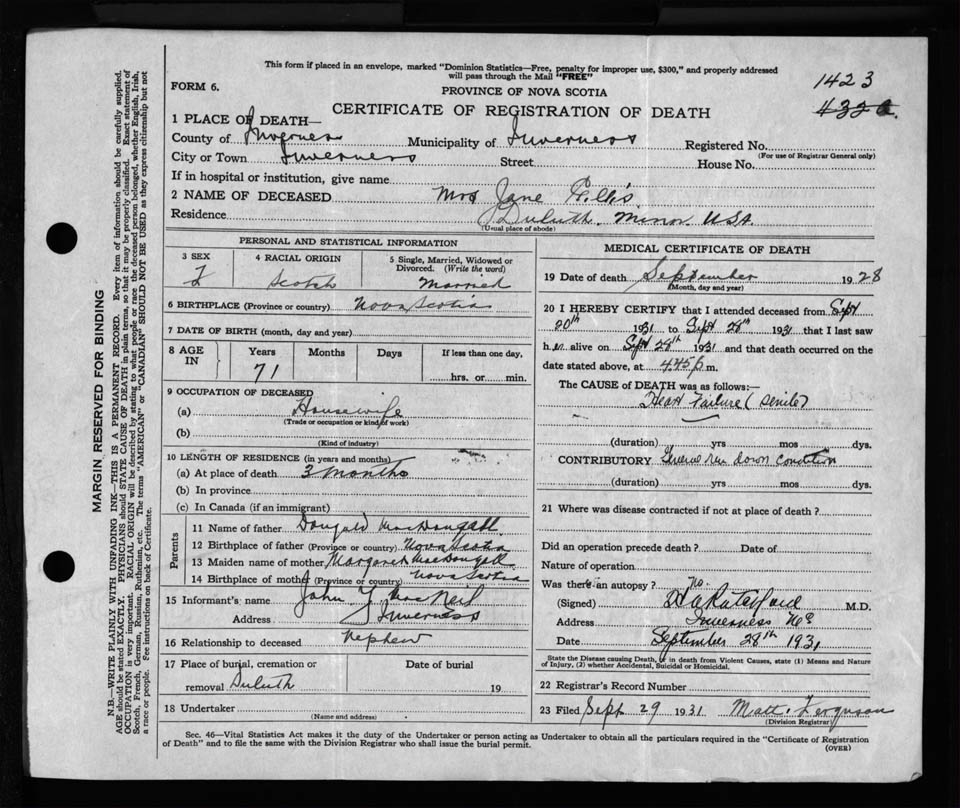 This form if placed in an envelope, marked "Dominion Statistics—Free, penalty for improper use, $300," and properly addressed
will pass through the Mail "FREE"
FORM 6.
PROVINCE OF NOVA SCOTIA
1423
432
CERTIFICATE OF REGISTRATION OF DEATH
1 PLACE OF DEATH—
County of Inverness Municipality of Inverness Registered No.
(For use of Registrar General only)
City or Town Inverness Street House No.
If in hospital or institution, give name
2 NAME OF DECEASED Mrs Jane Gillis
Residence Duluth, Minn USA
(Usual place of abode)
PERSONAL AND STATISTICAL INFORMATION
3 SEX 4 RACIAL ORIGIN 5 Single, Married, Widowed or
Divorced. (Write the word)
F Scotch Married
6 BIRTHPLACE (Province or country) Nova Scotia
7 DATE OF BIRTH (month, day and year)
8 AGE IN Years Months Days If less than one day,
71 hrs. or min.
9 OCCUPATION OF DECEASED
(a) Housewife
(Trade or occupation or kind of work)
(b)
(Kind of industry)
10 LENGTH OF RESIDENCE (in years and months)
(a) At place of death 3 months
(b) In province
(c) In Canada (if an immigrant)
Parents
11 Name of father Dougald MacDougall
12 Birthplace of father (Province or country) Nova Scotia
13 Maiden name of mother Margaret MacDougall
14 Birthplace of mother (Province or country) Nova Scotia
15 Informant's name John Y MacNeil
Address Inverness
16 Relationship to deceased nephew
17 Place of burial, cremation or Date of burial
removal Duluth 19
18 Undertaker
(Name and address)
MEDICAL CERTIFICATE OF DEATH
19 Date of death September 1928
(Month, day and year)
20 I HEREBY CERTIFY that I attended deceased from Sept
20th 1931 to Sept 28th 1931 that I last saw
h.. alive on Sept 28th 1931 and that death occurred on the
date stated above, at 4.45 p m.
The CAUSE OF DEATH was as follows:—
Heart Failure (senile)
(duration) yrs mos dys.
CONTRIBUTORY General run down condition
(duration) yrs mos dys.
21 Where was disease contracted if not at place of death?
Did an operation precede death? Date of
Nature of operation
Was there an autopsy? no.
(Signed) M.D.
Address Inverness NS
Date September 28th 1931
State the Disease causing Death, or in death from Violent Causes, state (1) Means and Nature
of Injury, (2) whether Accidental, Suicidal or Homicidal.
22 Registrar's Record Number
23 Filed Sept 29 1931 Matt. Ferguson
(Division Registrar)
Sec. 46—Vital Statistics Act makes it the duty of the Undertaker or person acting as Undertaker to obtain all the particulars required in the "Certificate of Registration
of Death" and to file the same with the Division Registrar who shall issue the burial permit.
(OVER)
MARGIN RESERVED FOR BINDING
N.B.—WRITE PLAINLY WITH UNFADING INK—THIS IS A PERMANENT RECORD. Every item of information should be carefully supplied.
AGE should be stated EXACTLY. PHYSICIANS should STATE CAUSE OF DEATH in plain terms, so that it may be properly classified. Exact statement of
OCCUPATION is very important. RACIAL ORIGIN will be described by stating to what people or race the deceased person belonged, whether English, Irish,
Scotch, French, German, Russian, Ruthenian, etc. The terms "AMERICAN" or "CANADIAN" SHOULD NOT BE USED as they express citizenship but not
a race or people. Fee instructions on back of Certificate.